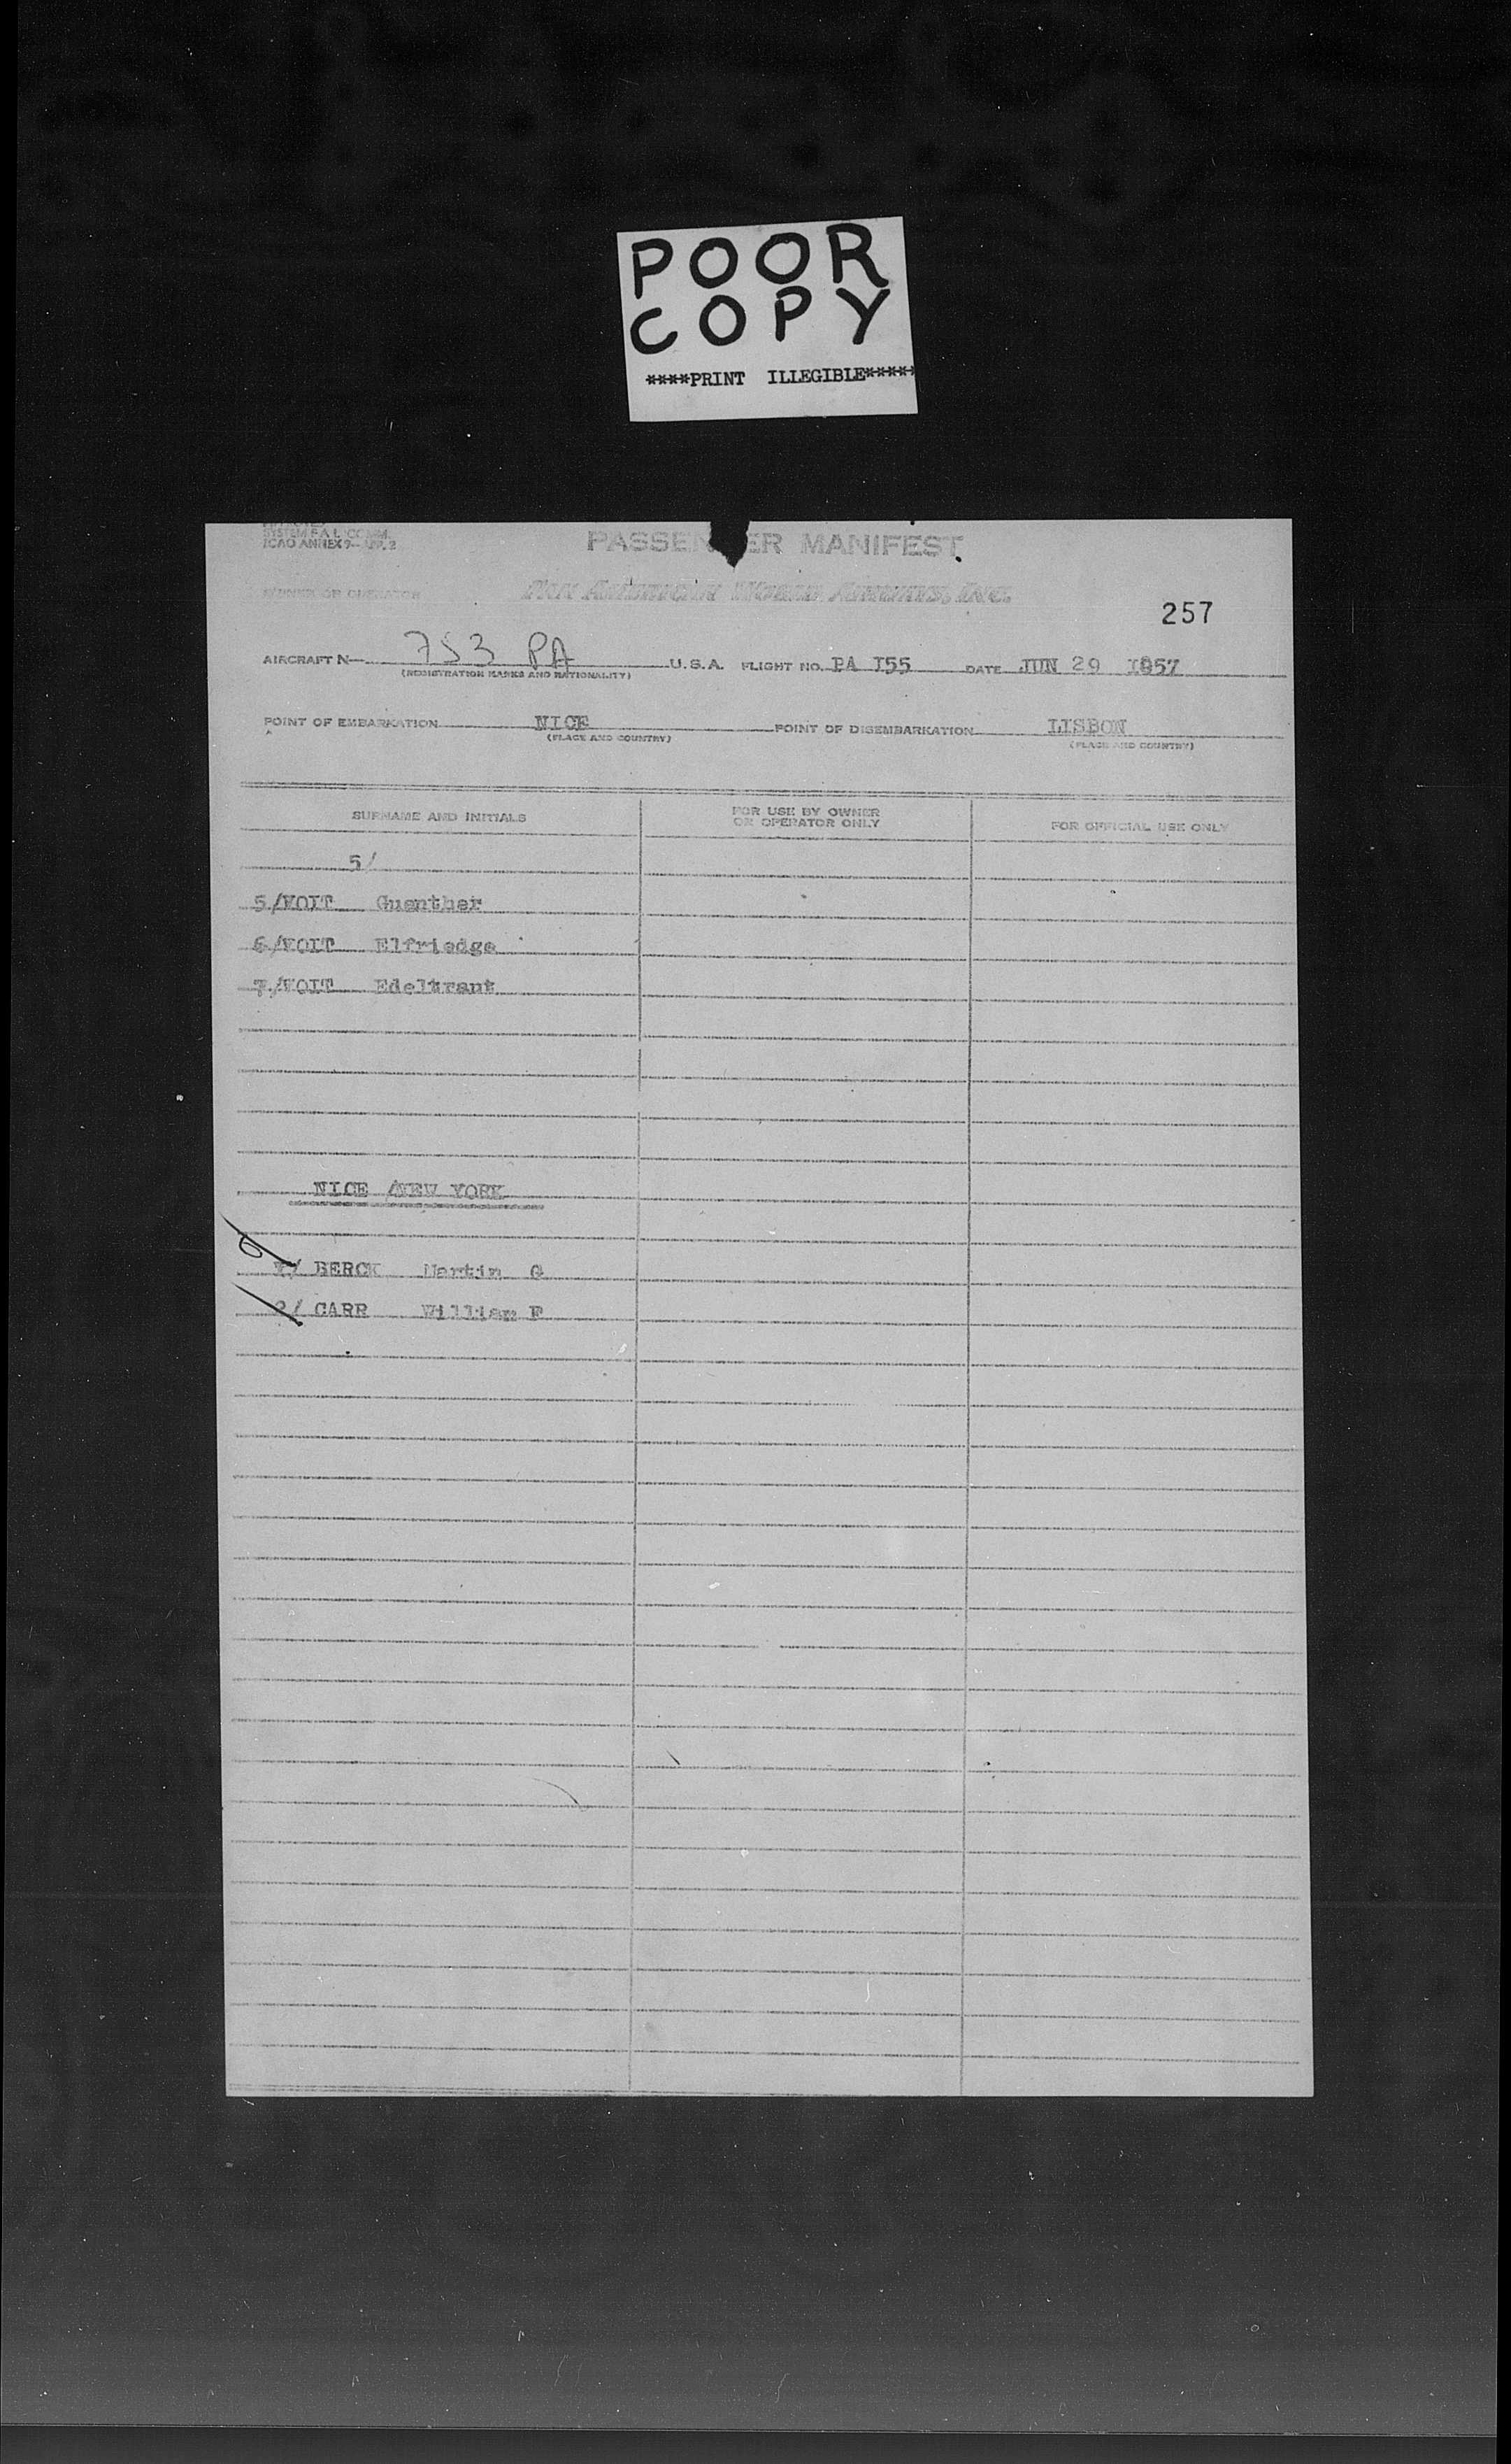 POOR
COPY
****PRINT ILLEGIBLE*****
SYSTEM F A L COMM.
ICAO ANNEX 9- APP. 2
PASSEN ER MANIFEST
OWNER OR OPERATOR PAN AMERICAN WORLD AIRWAYS, INC.
257
AIRCRAFT N- 753 PA U.S.A. FLIGHT NO. PA I55 DATE JUN 29 I957
(REGISTRATION MARKS AND NATIONALITY)
POINT OF EMBARKATION NICE POINT OF DISEMBARKATION LISBON
(PLACE AND COUNTRY) (PLACE AND COUNTRY)
SURNAME AND INITIALS FOR USE BY OWNER OR OPERATOR ONLY FOR OFFICIAL USE ONLY
5/
5/VOIT Guenther
6/VOIT Elfriedge
7/VOIT Edeltrant
NICE /NEW YORK
BERCK Martin G
2/ CARR William F